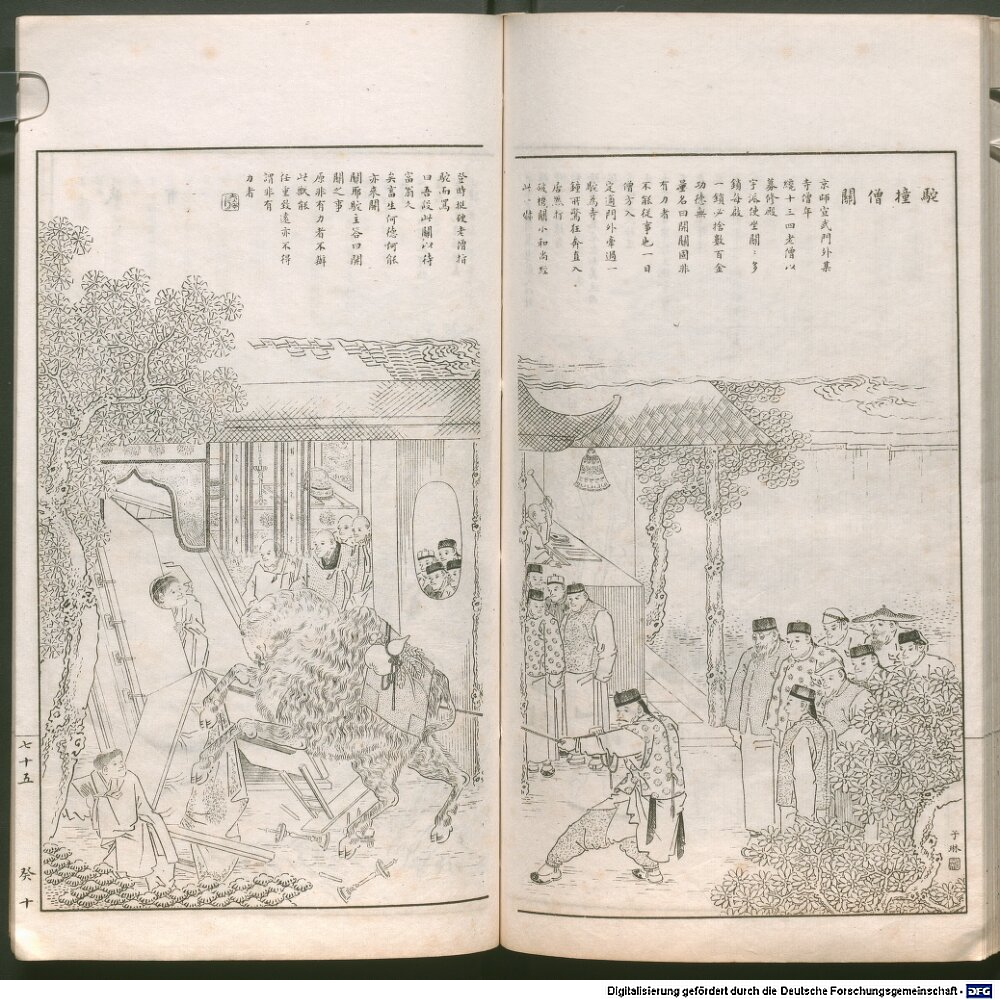 駝撞僧關
京師宣武門外某
寺僧年
纔十三四老僧以
募修殿
宇派使坐關
鎖每啟
一鎖必捨數百金
功德無
量名曰開關固非
有力者
不能從事也一日
僧方入
定適門外牽過一
駝為寺
鐘所驚狂奔直入
居然行
破機關小和尚
登時挺硬老僧指
駝而罵
曰吾設此關以待
富翁久
矣畜生何德何能
亦來開
關耶駝主答曰開
關之事
原非有力者不辦
此獸能
任重致遠亦不得
謂非有
力者
子琳
七十五
癸十
Digitalisierung gefördert durch die Deutsche Forschungsgemeinschaft - DFG